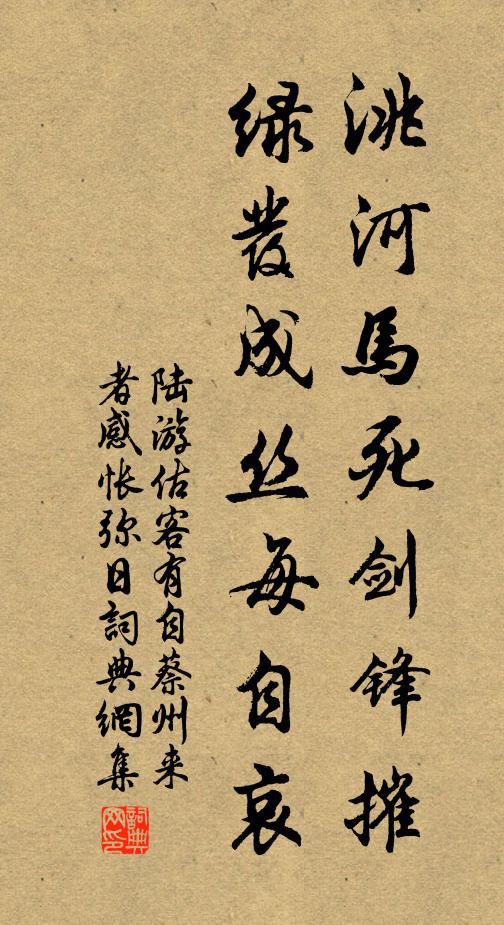 洮河馬死剑锋摧
绿發成丝每自哀
陆游估客有自蔡州来
者感怅弥日詞典網集
詞典
网印